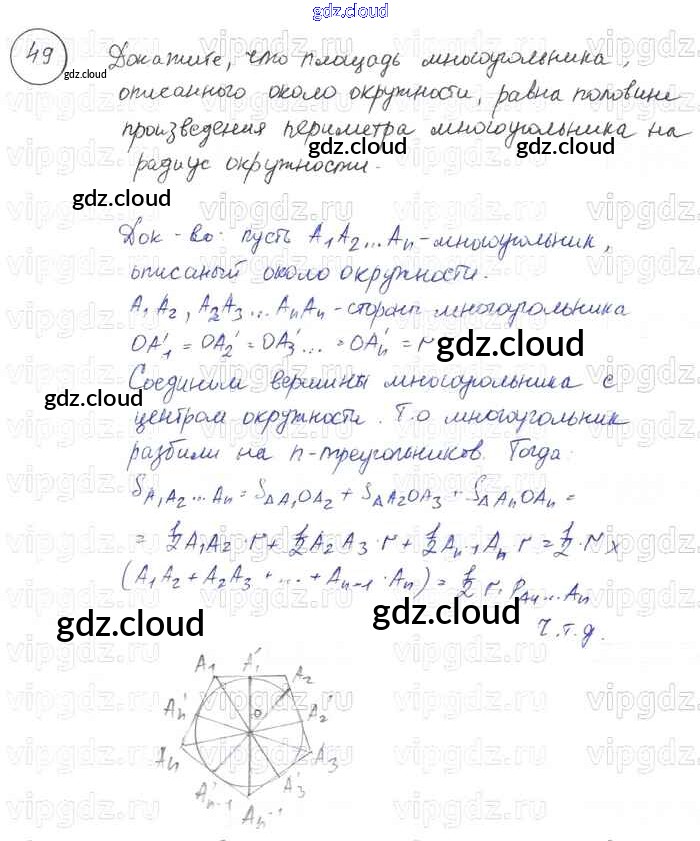 gdz.cloud
49 Докажите, что площадь многоугольника,
gdz.cloud
описанного около окружности, равна половине
произведения периметра многоугольника на
gdz.cloud gdz.cloud
радиус окружности.
gdz.cloud
Док-во: пусть A₁A₂...Aₙ - многоугольник,
описаный около окружности.
A₁A₂, A₂A₃...AₙAₙ - сторон многоугольника
OA₁' = OA₂' = OA₃'... = OAₙ' = r
gdz.cloud
Соединим вершины многоугольника с
gdz.cloud
центром окружности. Т.о многоугольник
разбили на n-треугольников. Тогда:
S A₁A₂...Aₙ = S△A₁OA₂ + S△A₂OA₃ + S△AₙOAₙ =
= 1/2 A₁A₂·r + 1/2 A₂A₃·r + 1/2 Aₙ₋₁Aₙ r = 1/2·r x
(A₁A₂ + A₂A₃ + ... + Aₙ₋₁·Aₙ) = 1/2 r·P A₁...Aₙ
gdz.cloud gdz.cloud
Ч.т.д.
A₁ A₁' A₂
Aₙ' O A₂'
Aₙ A₃
Aₙ₋₁' A₃'
Aₙ₋₁
vipgdz.ru